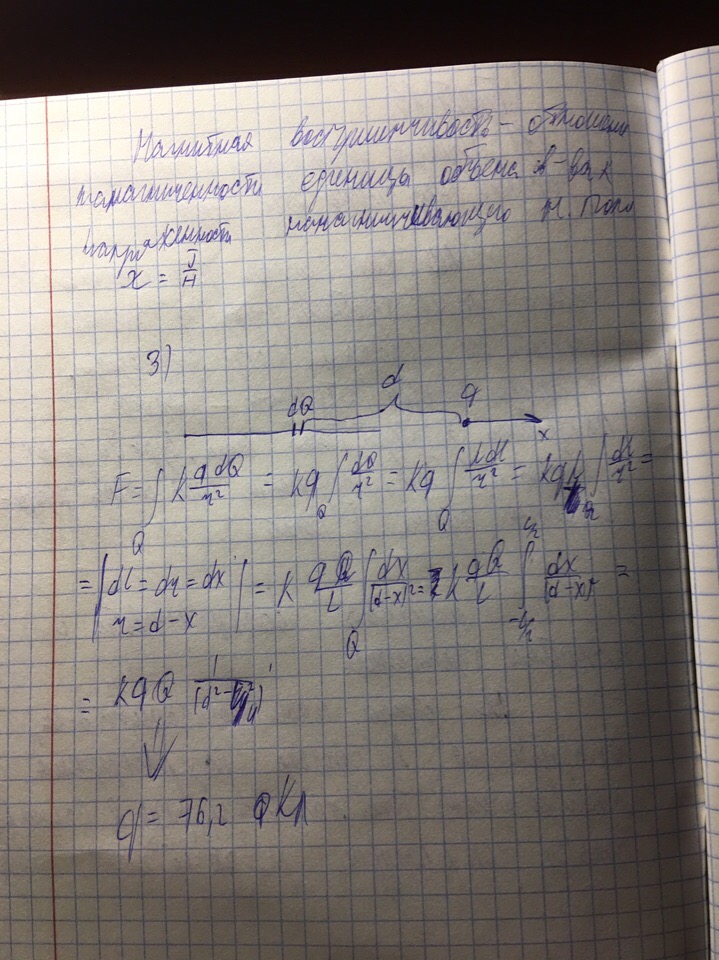 Магнитная восприимчивость - отношение
намагниченности единицы объема в-ва к
напряженности намагничивающего м. поля
χ = J/H
3)
dQ d q
x
F = ∫_Q k q dQ/r² = kq ∫_Q dQ/r² = kq ∫_Q λdl/r² = kqλ ∫_Q dl/r² =
= | dl = dr = dx
r = d-x | = k qQ/L ∫_Q dx/(d-x)² = k qQ/L ∫_{-L/2}^{L/2} dx/(d-x)² =
= kqQ 1/(d² - L²/4)
⇓
q = 76,2 Кл